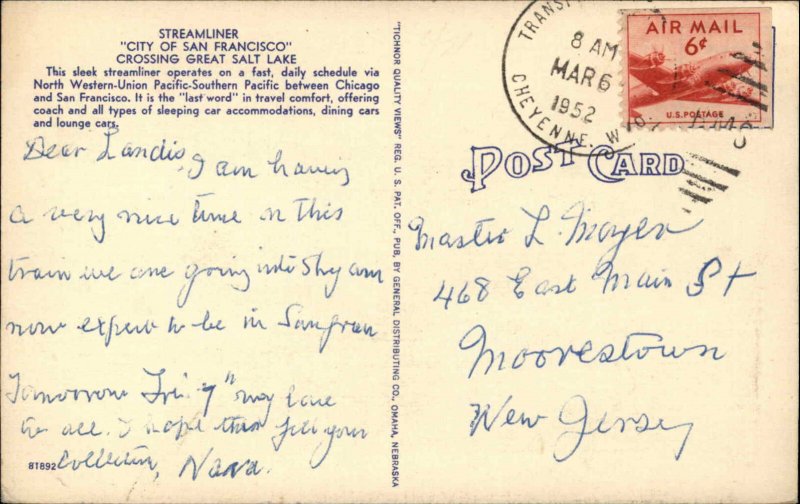 STREAMLINER
"CITY OF SAN FRANCISCO"
CROSSING GREAT SALT LAKE
This sleek streamliner operates on a fast, daily schedule via
North Western-Union Pacific-Southern Pacific between Chicago
and San Francisco. It is the "last word" in travel comfort, offering
coach and all types of sleeping car accommodations, dining cars
and lounge cars.
Dear Landis, I am having
a very nice time on this
train we are going into
now expect to be in Sanfran
Tomorrow Fri 7" my love
to all. I hope this for your
Collection, Nana.
81892
"TICHNOR QUALITY VIEWS" REG. U. S. PAT. OFF., PUB. BY GENERAL DISTRIBUTING CO., OMAHA, NEBRASKA
CHEYENNE, WYO.
8 AM
MAR 6
1952
AIR MAIL
6¢
U.S. POSTAGE
POST CARD
Master L. Moyer
468 East Main St
Moorestown
New Jersey